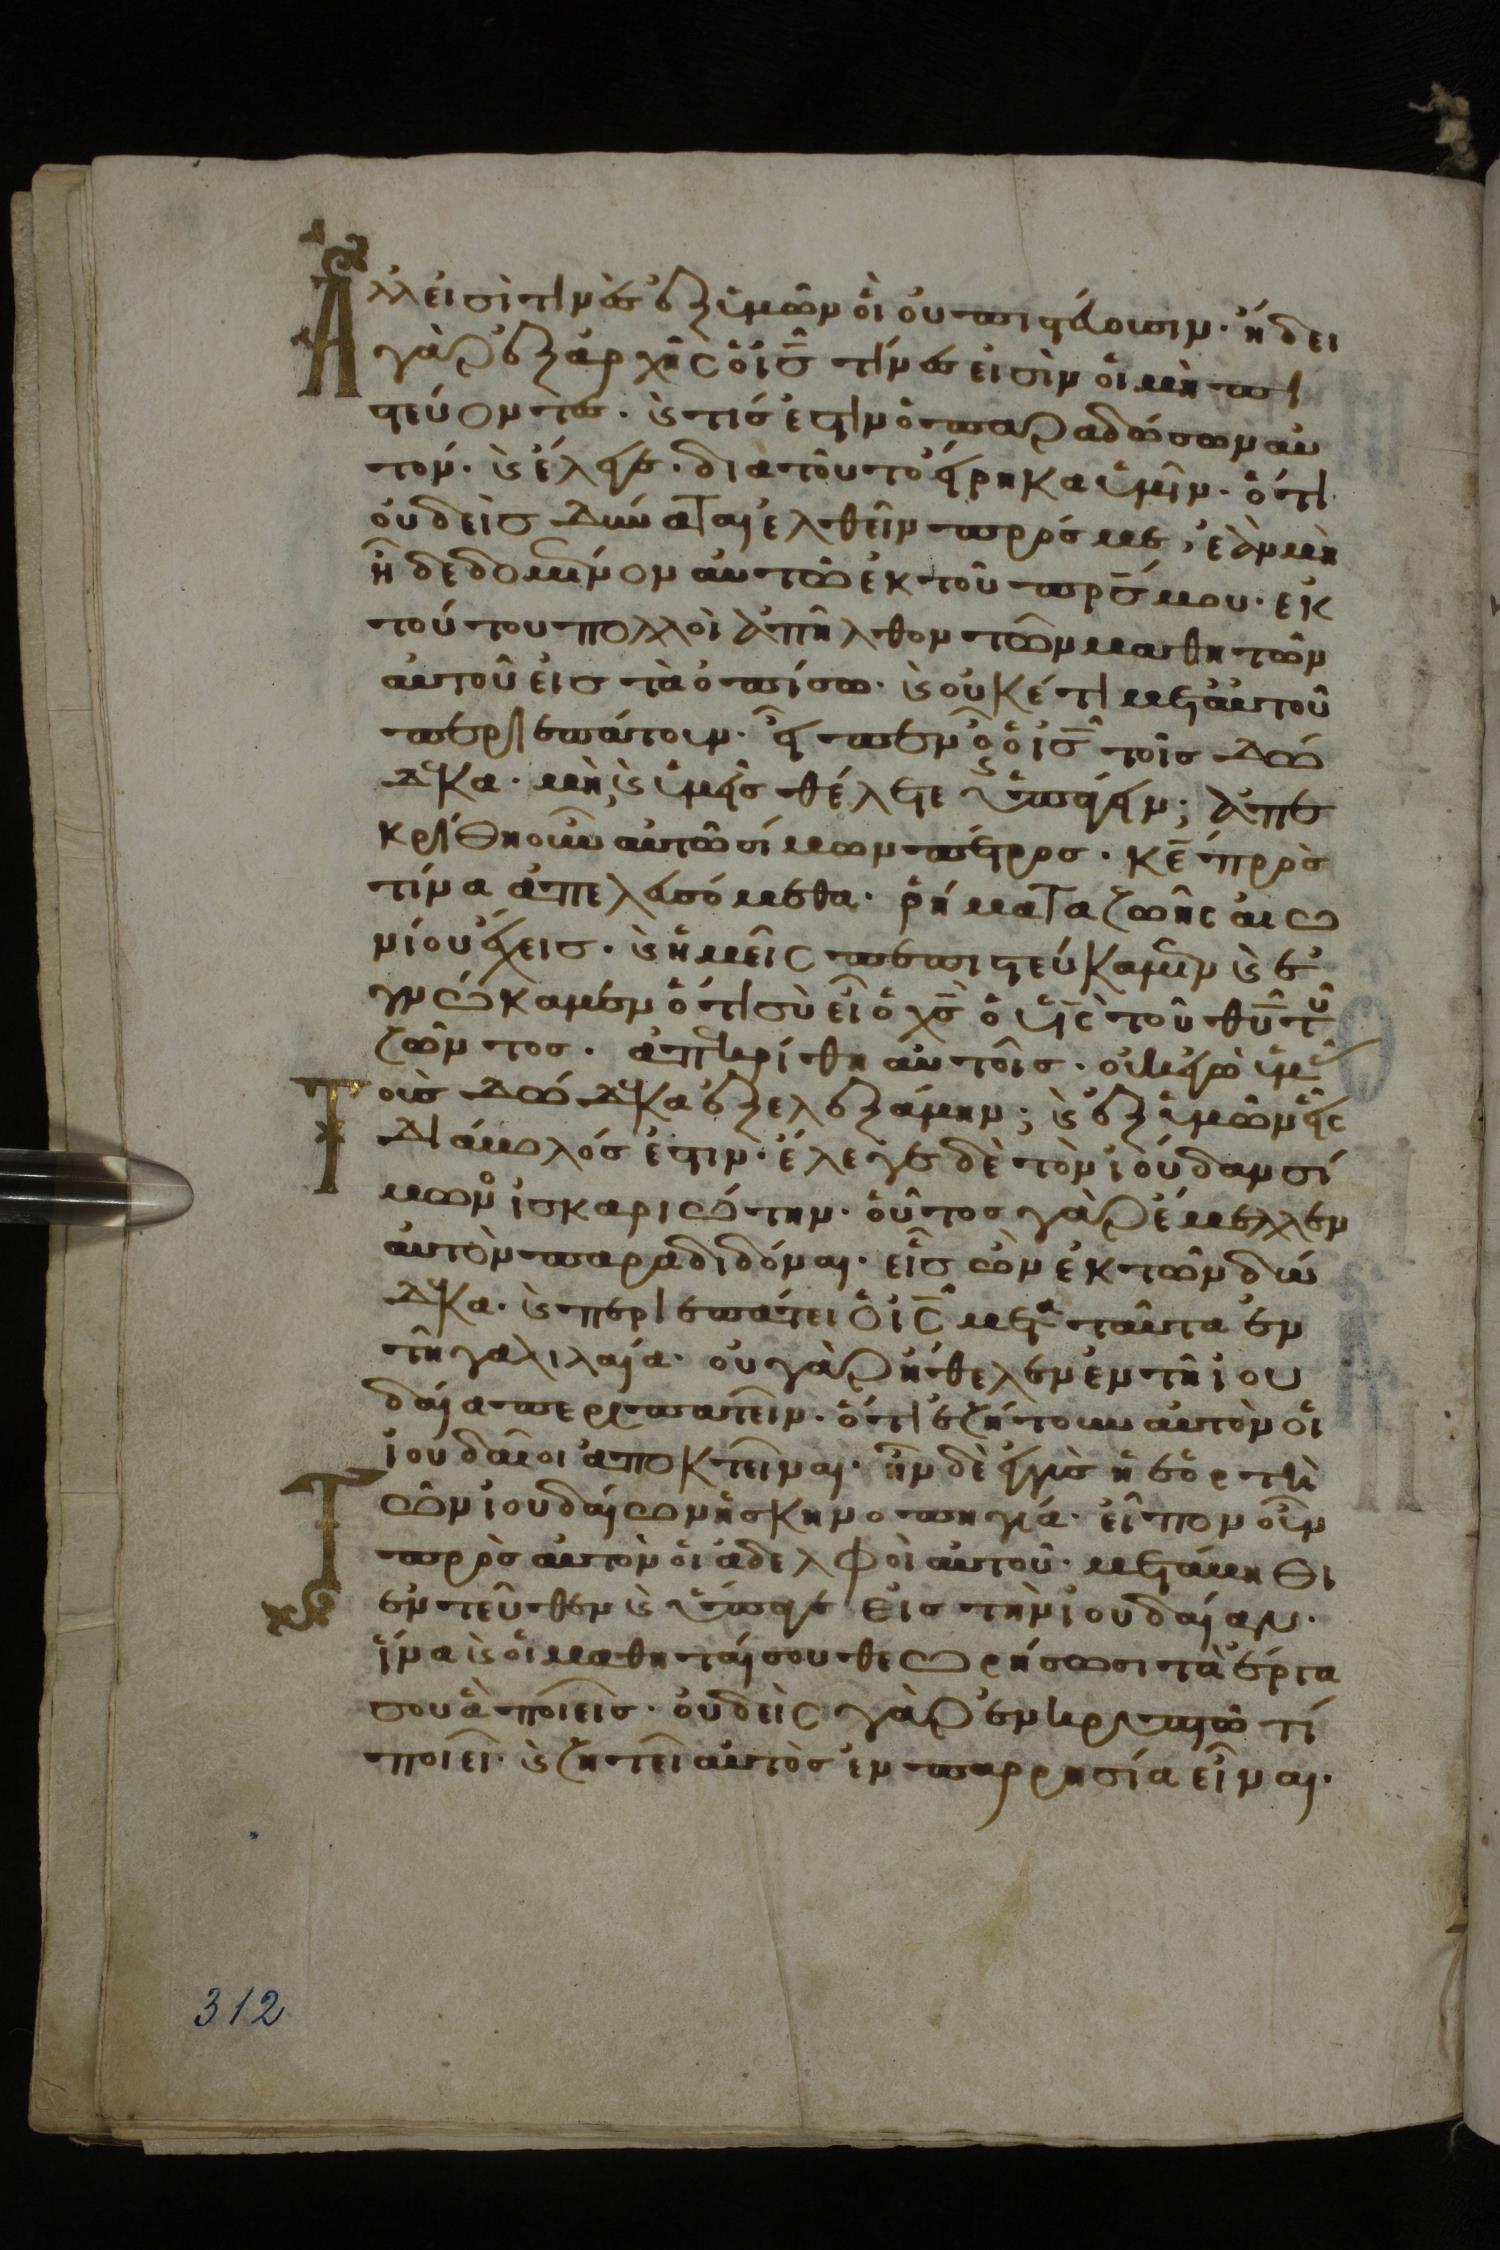 Ἀλλ' εἰσί τινες ἐξ ὑμῶν οἳ οὐ πιστεύουσιν· ἤδει
γὰρ ἐξ ἀρχῆς ὁ ις̅ τίνες εἰσὶν οἱ μὴ πι
στεύοντες. καὶ τίς ἐστιν ὁ παραδώσων αὐ
τόν. καὶ ἔλεγε. διὰ τοῦτο εἴρηκα ὑμῖν. ὅτι
οὐδεὶς δύναται ἐλθεῖν πρός με, ἐὰν μὴ
ἦ δεδομένον αὐτῶ ἐκ τοῦ πρ̅ς μου. ἐκ
τούτου πολλοὶ ἀπῆλθον τῶν μαθητῶν
αὐτοῦ εἰς τὰ ὀπίσω. καὶ οὐκέτι μετ' αὐτοῦ
περιεπάτουν. εἶπεν οὖν ὁ ις̅ τοῖς δώ
δεκα. μὴ καὶ ὑμεῖς θέλετε ὑπάγειν; ἀπε
κρίθη οὖν αὐτῶ σίμων πέτρος. κε̅ πρὸς
τίνα ἀπελευσόμεθα. ῥήματα ζωῆς αἰω
νίου ἔχεις. καὶ ἡμεῖς πεπιστεύκαμεν καὶ ἐ
γνώκαμεν ὅτι σὺ εἶ ὁ χς̅ ὁ υἱς̅ τοῦ θυ̅ τοῦ
ζῶντος. ἀπεκρίθη αὐτοῖς. οὐκ ἐγὼ ὑμᾶς
Τοὺς δώδεκα ἐξελεξάμην; καὶ ἐξ ὑμῶν εἷς
διάβολός ἐστιν. ἔλεγε δὲ τὸν ἰούδαν σί
μωνος ἰσκαριώτην. οὗτος γὰρ ἔμελλεν
αὐτὸν παραδιδόναι. εἷς ὢν ἐκ τῶν δώ
δεκα. καὶ περιεπάτει ὁ ις̅ μετὰ ταῦτα ἐν
τῆ γαλιλαία. οὐ γὰρ ἤθελεν ἐν τῆ ἰου
δαία περιπατεῖν. ὅτι ἐζήτουν αὐτὸν οἱ
ἰουδαῖοι ἀποκτεῖναι. ἦν δὲ ἐγγὺς ἡ ἑορτὴ
Τῶν ἰουδαίων ἡ σκηνοπηγία. εἶπον οὖν
πρὸς αὐτὸν οἱ ἀδελφοὶ αὐτοῦ. μετάβηθι
ἐντεῦθεν καὶ ὕπαγε εἰς τὴν ἰουδαίαν.
ἵνα καὶ οἱ μαθηταί σου θεωρήσωσι τὰ ἔργα
σου ἃ ποιεῖς. οὐδεὶς γὰρ ἐν κρυπτῶ τί
ποιεῖ. καὶ ζητεῖ αὐτὸς ἐν παρρησία εἶναι.
312